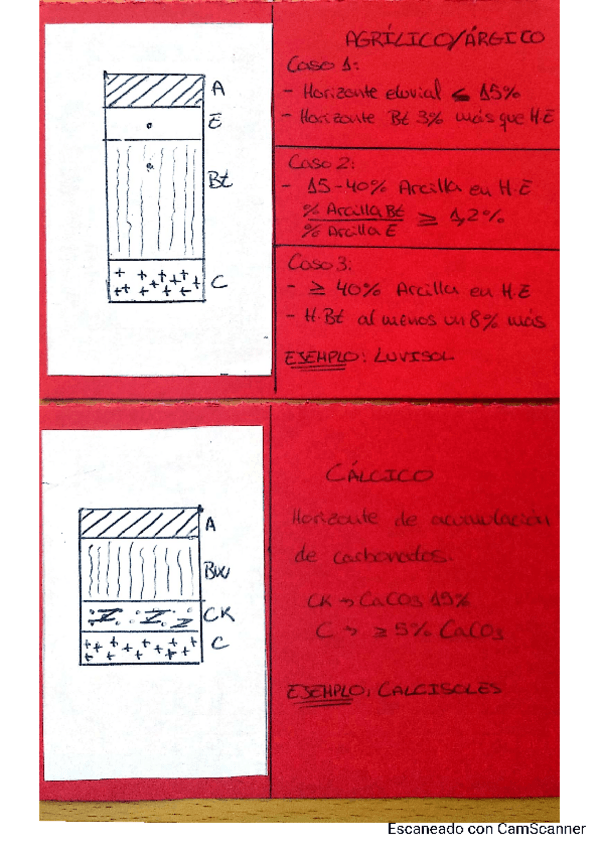 A
E
Bt
C
AGRÍLICO/ÁRGICO
Caso 1:
- Horizonte eluvial ≤ 15%
- Horizonte Bt 3% más que H.E
Caso 2:
- 15-40% Arcilla en H.E
% Arcilla Bt
% Arcilla E
≥ 1,2%
Caso 3:
- ≥ 40% Arcilla en H.E
- H.Bt al menos un 8% más
EJEMPLO: LUVISOL
A
Bw
CK
C
CÁLCICO
Horizonte de acumulación
de carbonatos.
CK → CaCO3 15%
C → ≥ 5% CaCO3
EJEMPLO: CALCISOLES
Escaneado con CamScanner